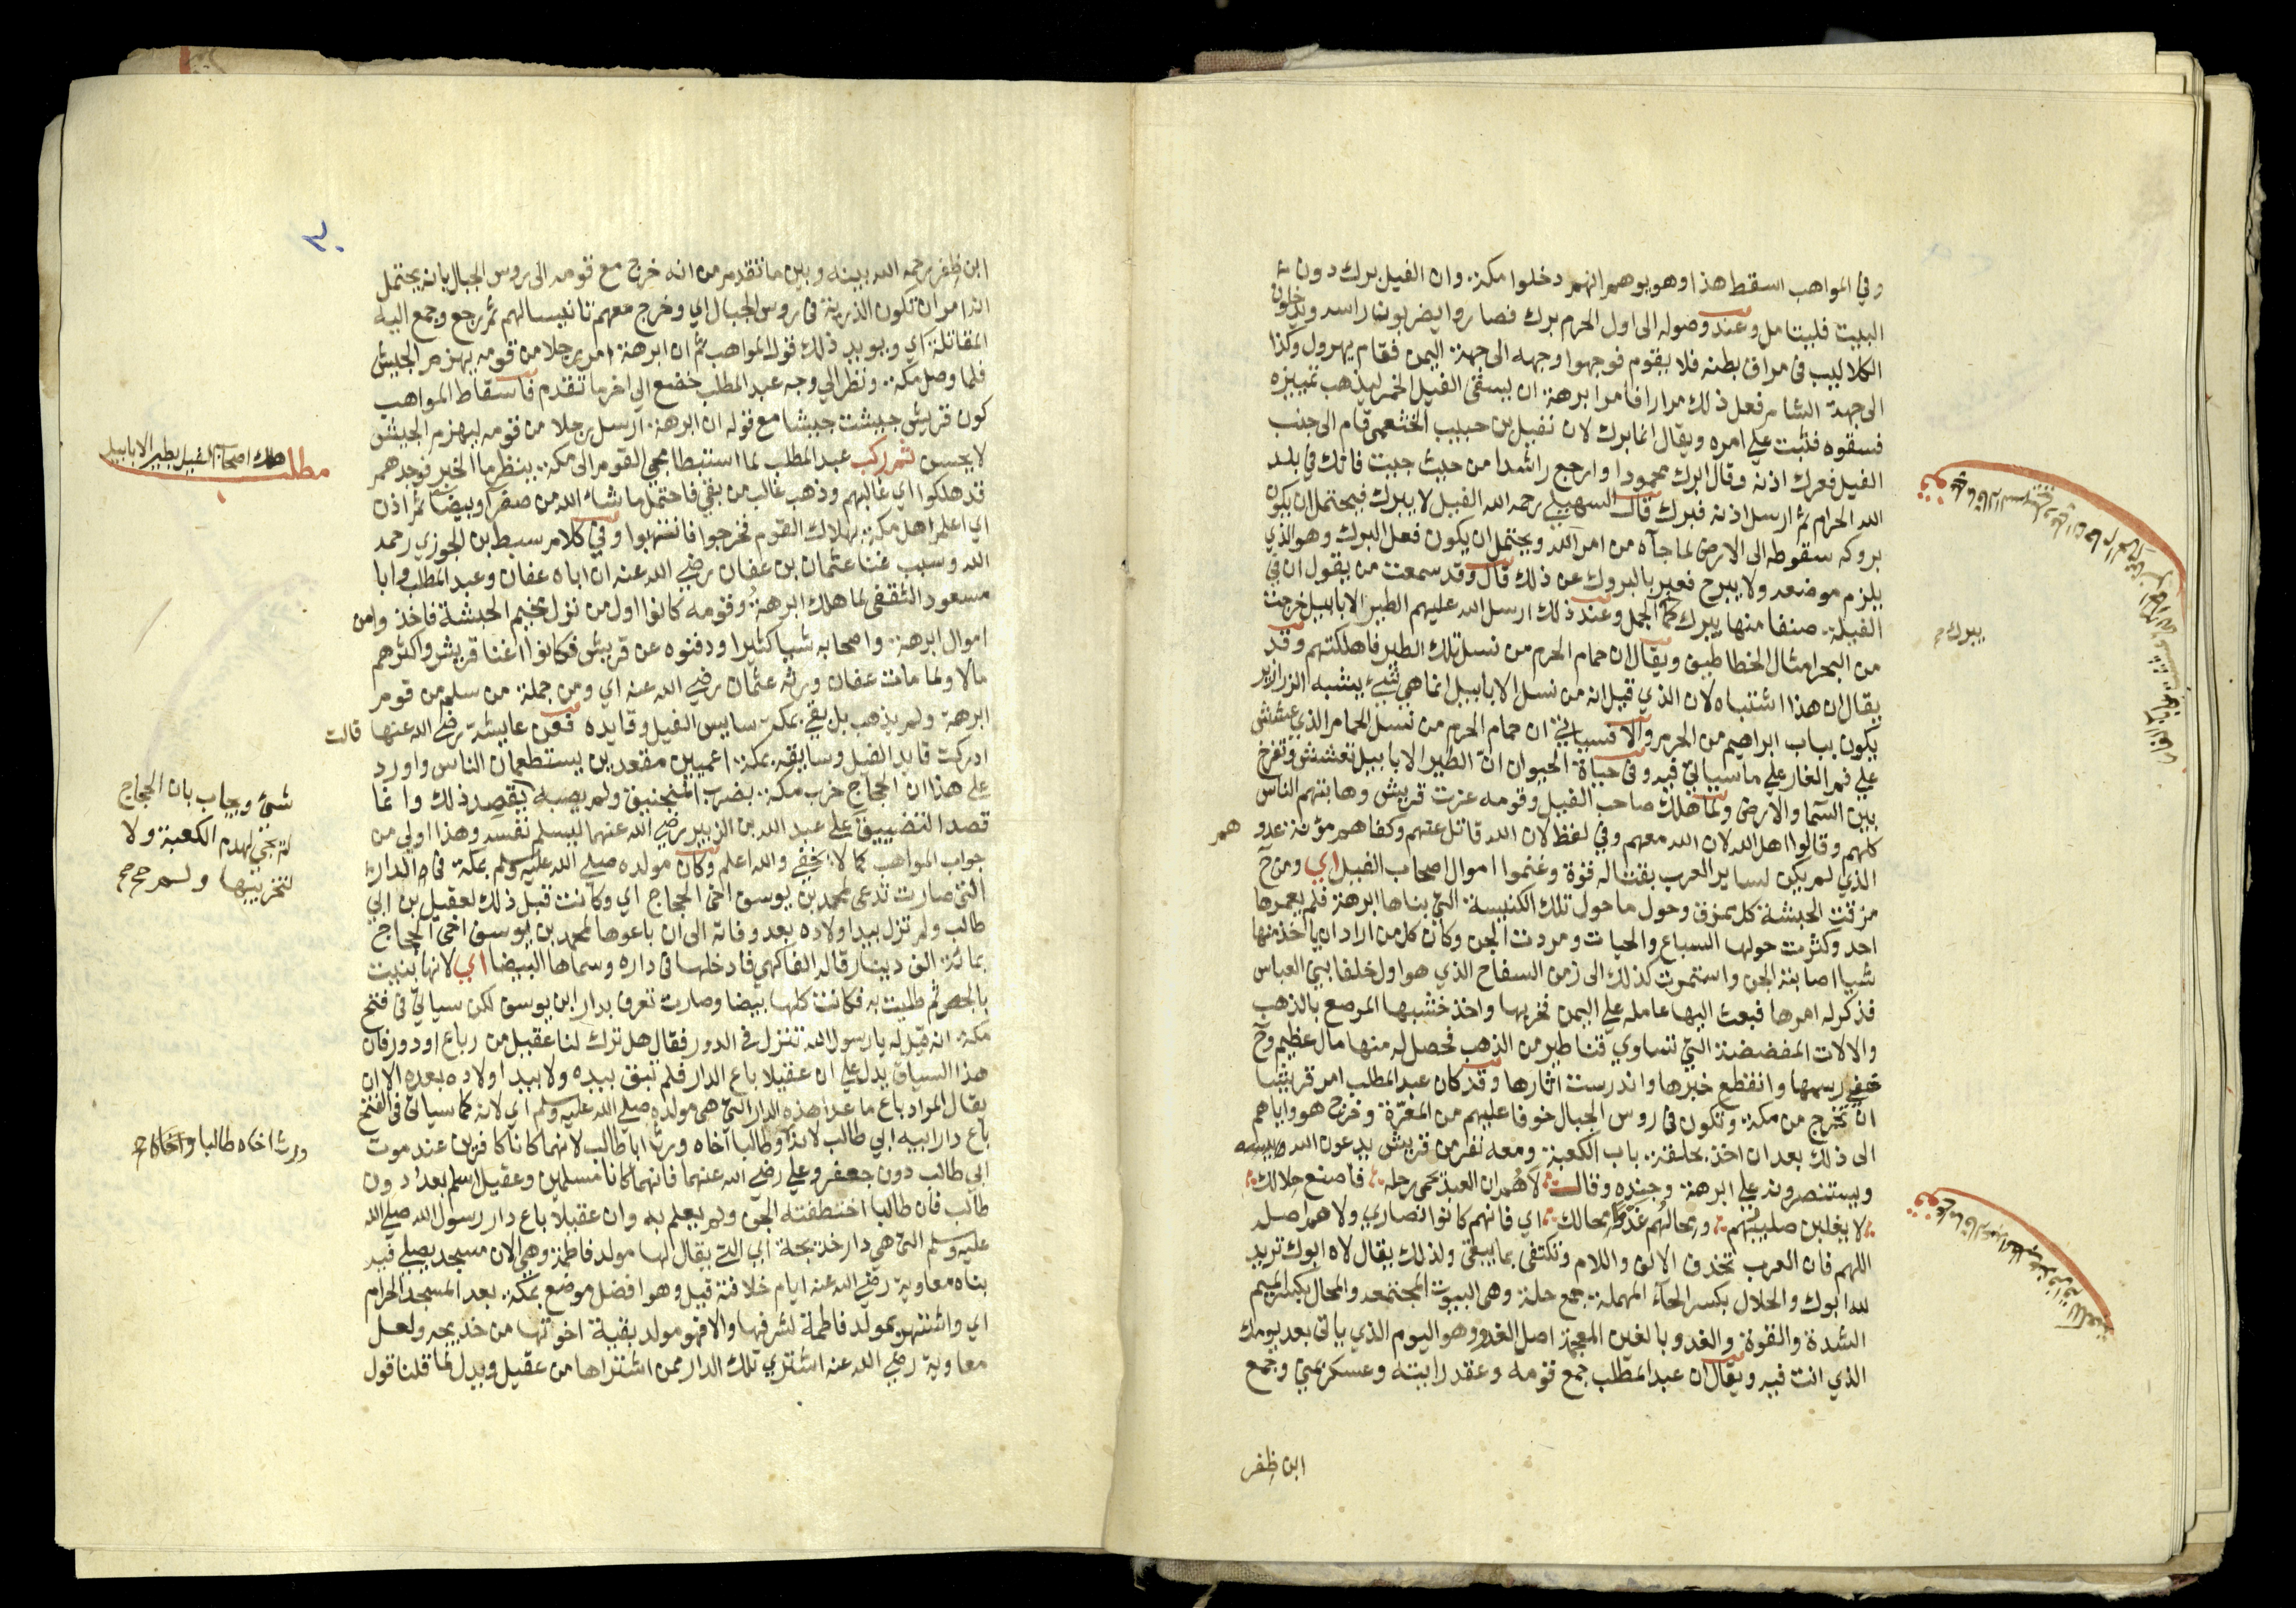 وفي المواهب اسقط هذا وهو يوهم انهم دخلوا مكة وان الفيل برك دون
البيت فليتامل وعند وصوله الى اول الحرم برك فصاروا يضربون راسه ويدخلون
الكلاليب فى مراق بطنه فلا يقوم فوجهوا وجهه الى جهة اليمن فقام يهرول وكذا
الى جهة الشام فعل ذلك مرارا فامر ابرهة ان يسقى الفيل الخمر ليذهب تمييزه
فسقوه فثبت على امره ويقال انما برك لان نفيل بن حبيب الخثعمى قام الى جنب
الفيل فعرك اذنه وقال ابرك محمودا وارجع راشدا من حيث جيت فانك في بلد
الله الحرام ثم ارسل اذنه فبرك قال السهيلي رحمه الله الفيل لا يبرك فيحتمل ان يكون
بروكه سقوطه الى الارض لما جآه من امر الله ويحتمل ان يكون فعل البرك وهو الذي
يلزم موضعه ولا يبرح فعبر بالبروك عن ذلك قال وقد سمعت من يقول ان في
الفيلة صنفا منها يبرك كما الجمل وعند ذلك ارسل الله عليهم الطير الابابيل خرجت
من البحر امثال الخطاطيف ويقال ان حمام الحرم من نسل تلك الطير فاهلكتهم وقد
يقال ان هذا اشتباه لان الذي قيل انه من نسل الابابيل انما هي شيء يشبه الزرازير
يكون بباب ابراهيم من الحرم والا فسياتي ان حمام الحرم من نسل الحمام الذي عشش
على فم الغار على ما سياتي فيه وفى حياة الحيوان ان الطير الابابيل تعشش وتفرخ
بين السما والارض ولما هلك صاحب الفيل وقومه عزت قريش وهابتهم الناس
كلهم وقالوا اهل الله لان الله معهم وفي لفظ لان الله قاتل عنهم وكفاهم مؤنة عدو
هم
الذي لم يكن لساير العرب بقتاله قوة وغنموا اموال اصحاب الفيل اي ومن ح
مزقت الحبشة كل ممزق وحول ما حول تلك الكنيسة التي بناها ابرهة فلم يعمرها
احد وكثرت حولها السباع والحيات ومردت الجن وكان كل من اراد ان ياخذ منها
شيا اصابته الجن واستمرت كذلك الى زمن السفاح الذي هو اول خلفا بني العباس
فذكر له امرها فبعث اليها عامله على اليمن فخربها واخذ خشبها المرصع بالذهب
والالات المفضضة التي تساوي قناطير من الذهب فحصل له منها مال عظيم وح
عفي رسمها وانقطع خبرها واندرست اثارها وقد كان عبد المطلب امر قريشا
ان تخرج من مكة وتكون فى روس الجبال خوفا عليهم من المعرة وخرج هو واياهم
الى ذلك بعد ان اخذ بحلقة باب الكعبة ومعه نفر من قريش يدعون الله
ويستنصرونه على ابرهة وجنده وقال لاهم ان العبد يحمى رحله فاصنع حلالك
لا يغلبن صليبهم ومحالهم غدوا محالك اي فانهم كانوا نصارى ولاهم اصله
اللهم فان العرب تحذف الالف واللام وتكتفى بما يبقى ولذلك يقال لاه ابوك تريد
لله ابوك والحلال بكسر الحآء المهملة جمع حلة وهى البيوت المجتمعه والمحال بكسر الميم
الشدة والقوة والغدو بالغين المعجمة اصل الغد وهو اليوم الذي ياتى بعد يومك
الذي انت فيه ويقال ان عبد المطلب جمع قومه وعقد رايته وعسكر بمنى وجمع
ابن ظفر
يبرك
ابن ظفر رحمه الله بينه وبين ما تقدم من انه خرج مع قومه الى روس الجبال بانه يحتمل
انه امر ان تكون الذرية فى روس الجبال اي وخرج معهم تانيسا لهم ثم رجع وجمع اليه
المقاتلة اي ويويد ذلك قول المواهب ثم ان ابرهة امر رجلا من قومه يهزم الجيش
فلما وصل مكة ونظر الى وجه عبد المطلب خضع الى اخر ما تقدم فاسقاط المواهب
كون قريش جيشت جيشا مع قوله ان ابرهة ارسل رجلا من قومه ليهزم الجيش
لا يحسن ثم ركب عبد المطلب لما استبطا مجي القوم الى مكة ينظر ما الخبر فوجدهم
قد هلكوا اي غالبهم وذهب غالب من بقي فاحتمل ما شاء الله من صفرا وبيضا ثم اذن
اي اعلم اهل مكة بهلاك القوم فخرجوا فانتهبوا وفي كلام سبط بن الجوزي رحمه
الله وسبب غنا عثمان بن عفان رضي الله عنه ان اباه عفان وعبد المطلب وابا
مسعود الثقفي لما هلك ابرهة وقومه كانوا اول من نزل مخيم الحبشة فاخذوا من
اموال ابرهة واصحابه شيا كثيرا ودفنوه عن قريش فكانوا اغنا قريش واكثرهم
مالا ولما مات عفان ورثه عثمان رضي الله عنه اي ومن جملة من سلم من قوم
ابرهة ولم يذهب بل بقي بمكة سايس الفيل وقايده فعن عايشة رضي الله عنها قالت
ادركت قايد الفيل وسايقه بمكة اعميين مقعدين يستطعمان الناس واورد
على هذا ان الحجاج خرب مكة بضرب المنجنيق ولم يصبه بقصد ذلك وانما
قصد التضييق على عبد الله بن الزبير رضي الله عنهما ليسلم نفسه وهذا اولى من
جواب المواهب كما لا يخفي والله اعلم وكان مولده صلى الله عليه وسلم بمكة فى الدار
التى صارت تدعى لمحمد بن يوسف اخى الحجاج اي وكانت قبل ذلك لعقيل بن ابي
طالب ولم تزل بيد اولاده بعد وفاته الى ان باعوها لمحمد بن يوسف اخى الحجاج
بمائة الف دينار قاله الفاكهي فادخلها فى داره وسماها البيضا اي لانها بنيت
بالجص ثم طليت به فكانت كلها بيضا وصارت تعرف بدار ابن يوسف لكن سياتي فى فتح
مكة انه قيل له يا رسول الله تنزل في الدور فقال هل ترك لنا عقيل من رباع او دور فان
هذا السياق يدل على ان عقيلا باع الدار فلم تبق بيده ولا بيد اولاده بعده الا ان
يقال المراد باع ما عدا هذه الدار التى هى مولده صلى الله عليه وسلم اي لانه كما سياتى فى الفتح
باع دار ابيه ابي طالب لانه وطالبا اخاه ورثا ابا طالب لانهما كانا كافرين عند موت
ابي طالب دون جعفر وعلي رضي الله عنهما فانهما كانا مسلمين وعقيل اسلم بعد دون
طالب فان طالبا اختطفته الجن ولم يعلم به وان عقيلا باع دار رسول الله صلى الله
عليه وسلم التى هي دار خديجة اي التي يقال لها مولد فاطمة وهى الان مسجد يصلي فيه
بناه معاوية رضي الله عنه ايام خلافته قيل وهو افضل موضع بمكة بعد المسجد الحرام
اي واشتهر بمولد فاطمة لشرفها والا فهو مولد بقية اخوتها من خديجه ولعل
معاوية رضي الله عنه اشترى تلك الدار ممن اشتراها من عقيل ويدل لما قلنا قول
مطلب هلاك اصحاب الفيل بطير الابابيل
شئ ويجاب بان الحجاج
لم يجئ لهدم الكعبة ولا
لتخريبها ولم
ورث اخاه طالبا